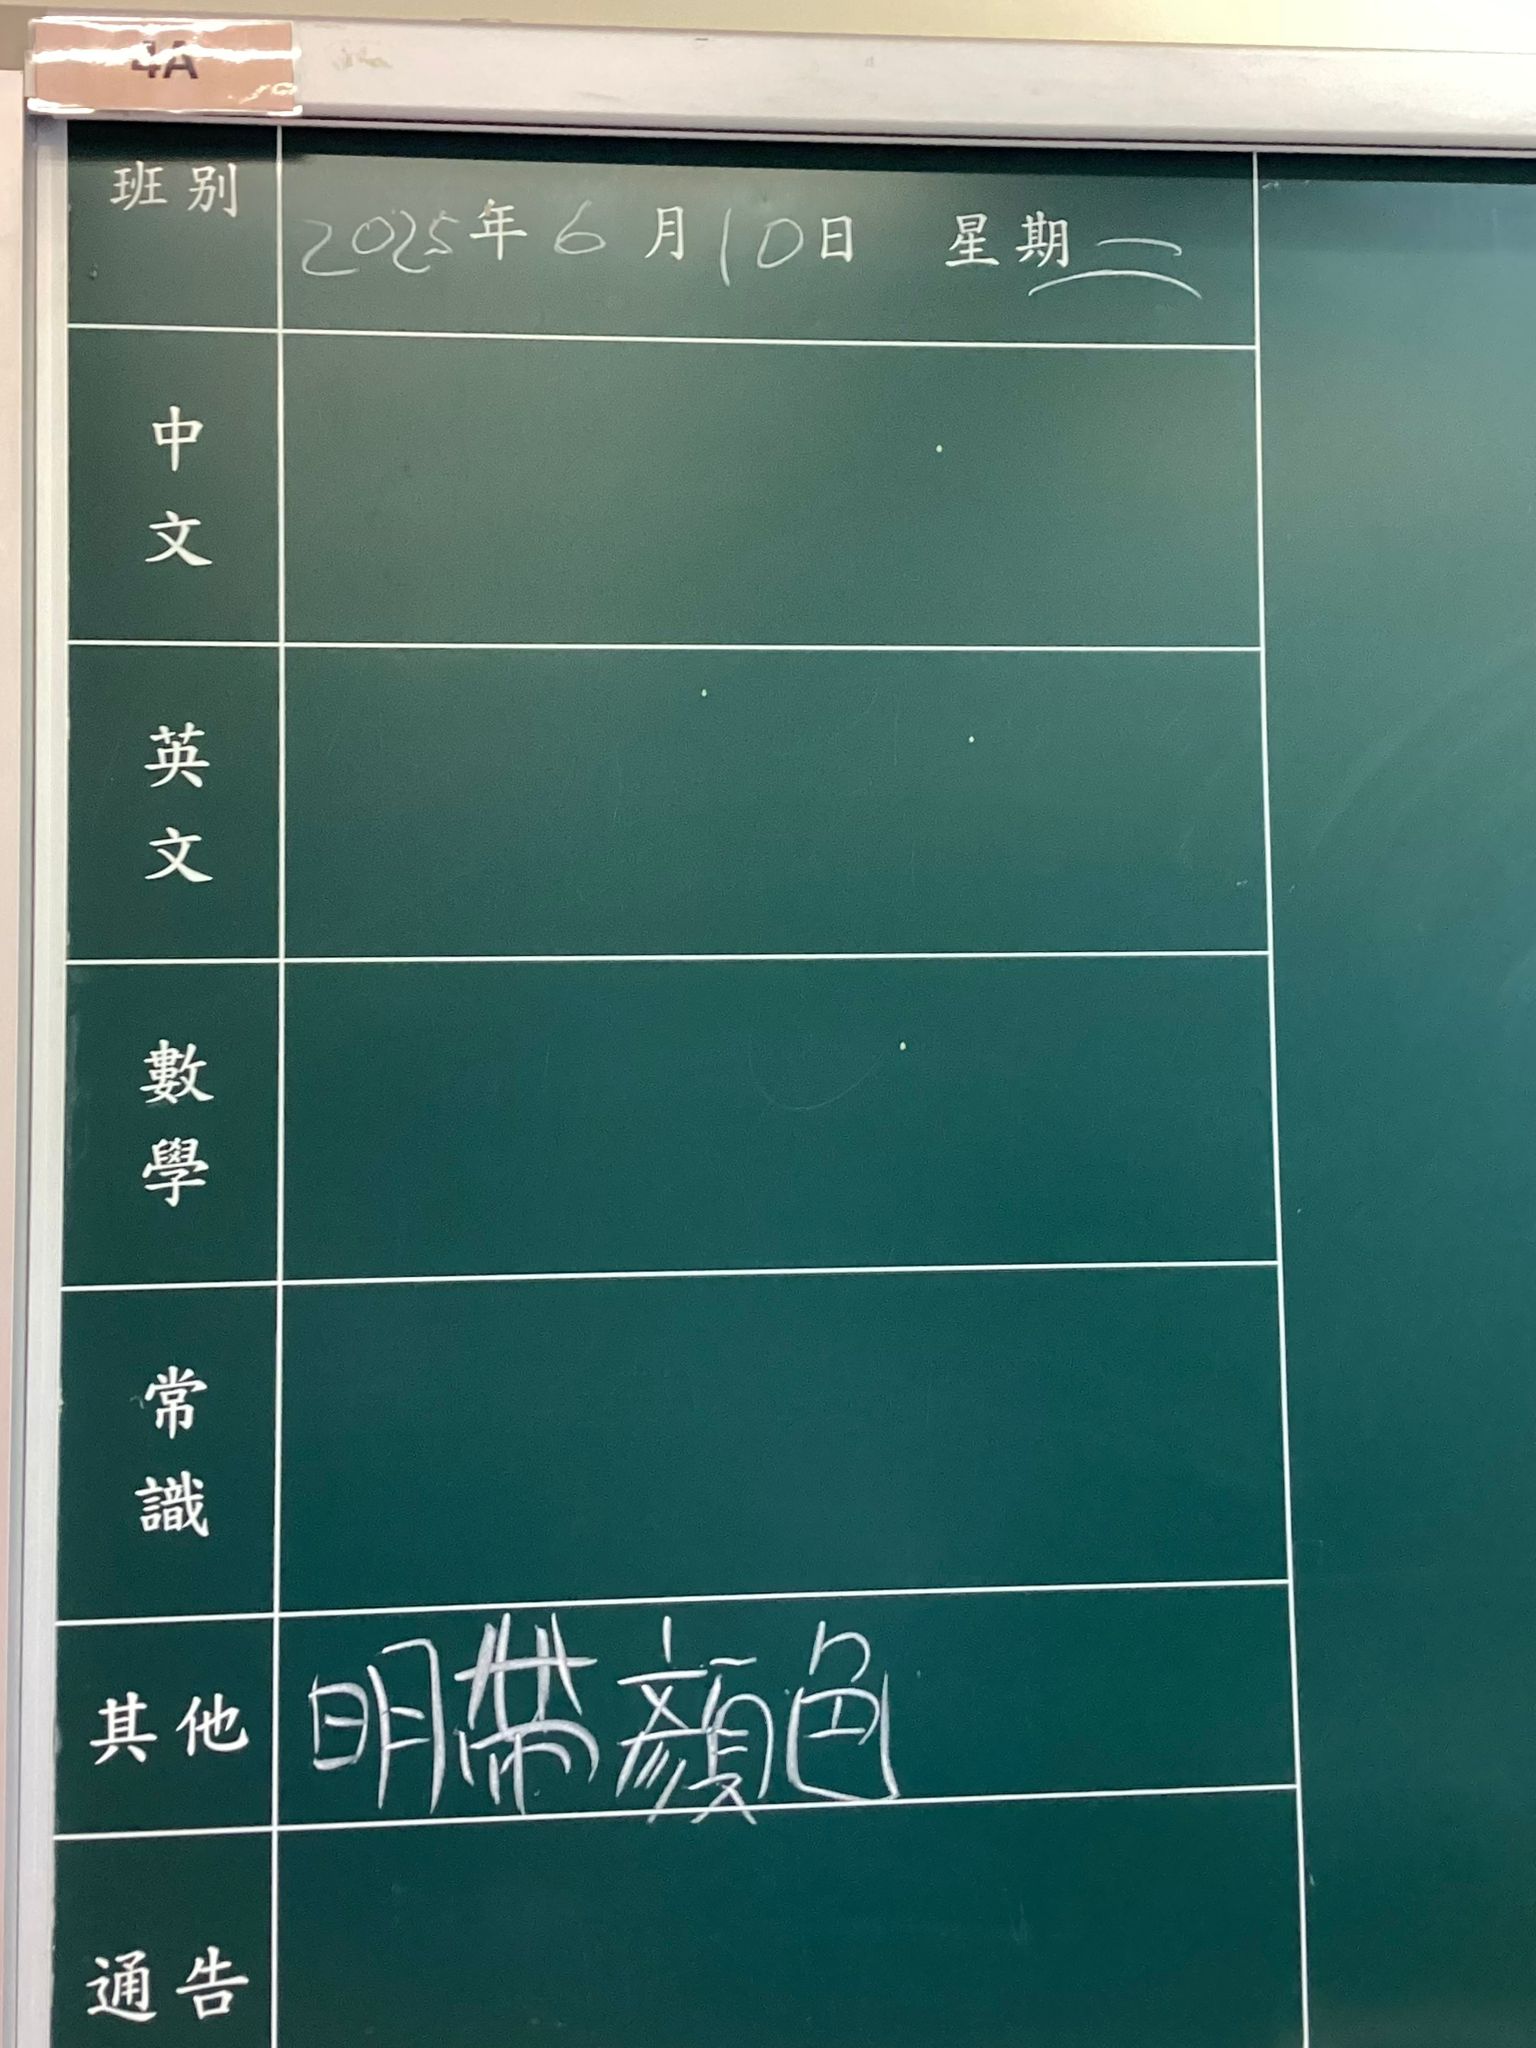 4A
班別
2025年6月10日 星期二
中文
英文
數學
常識
其他 明帶顏色
通告